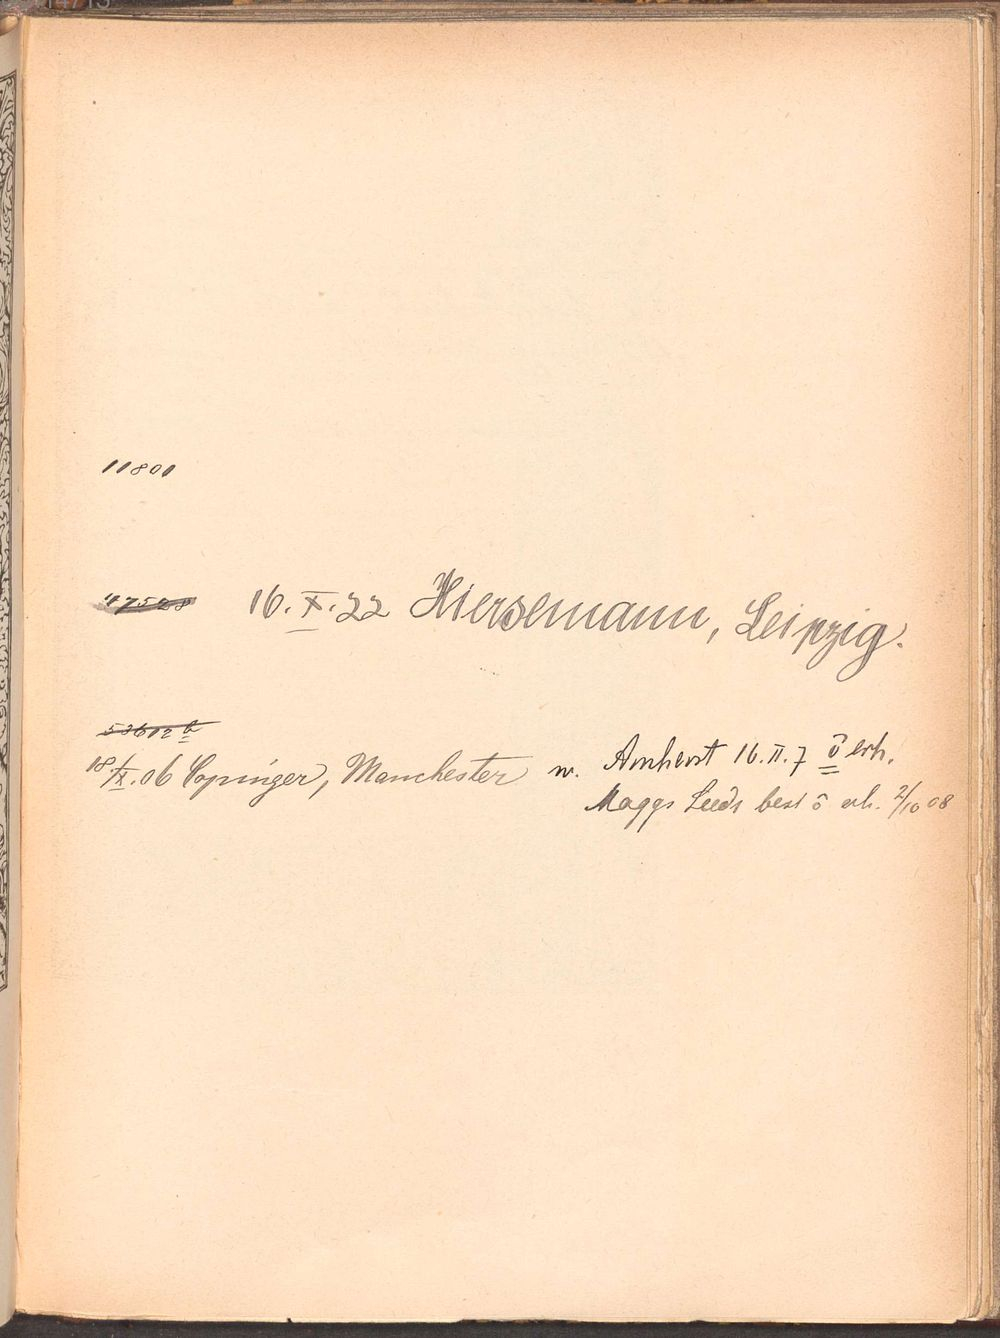 11801
47528 16. X. 22 Hiersemann, Leipzig.
53612 b
18/IX. 06 Copinger, Manchester n. Amherst 16. II. 7 ō erh.
Maggs Leeds best ō erh. 2/10 08